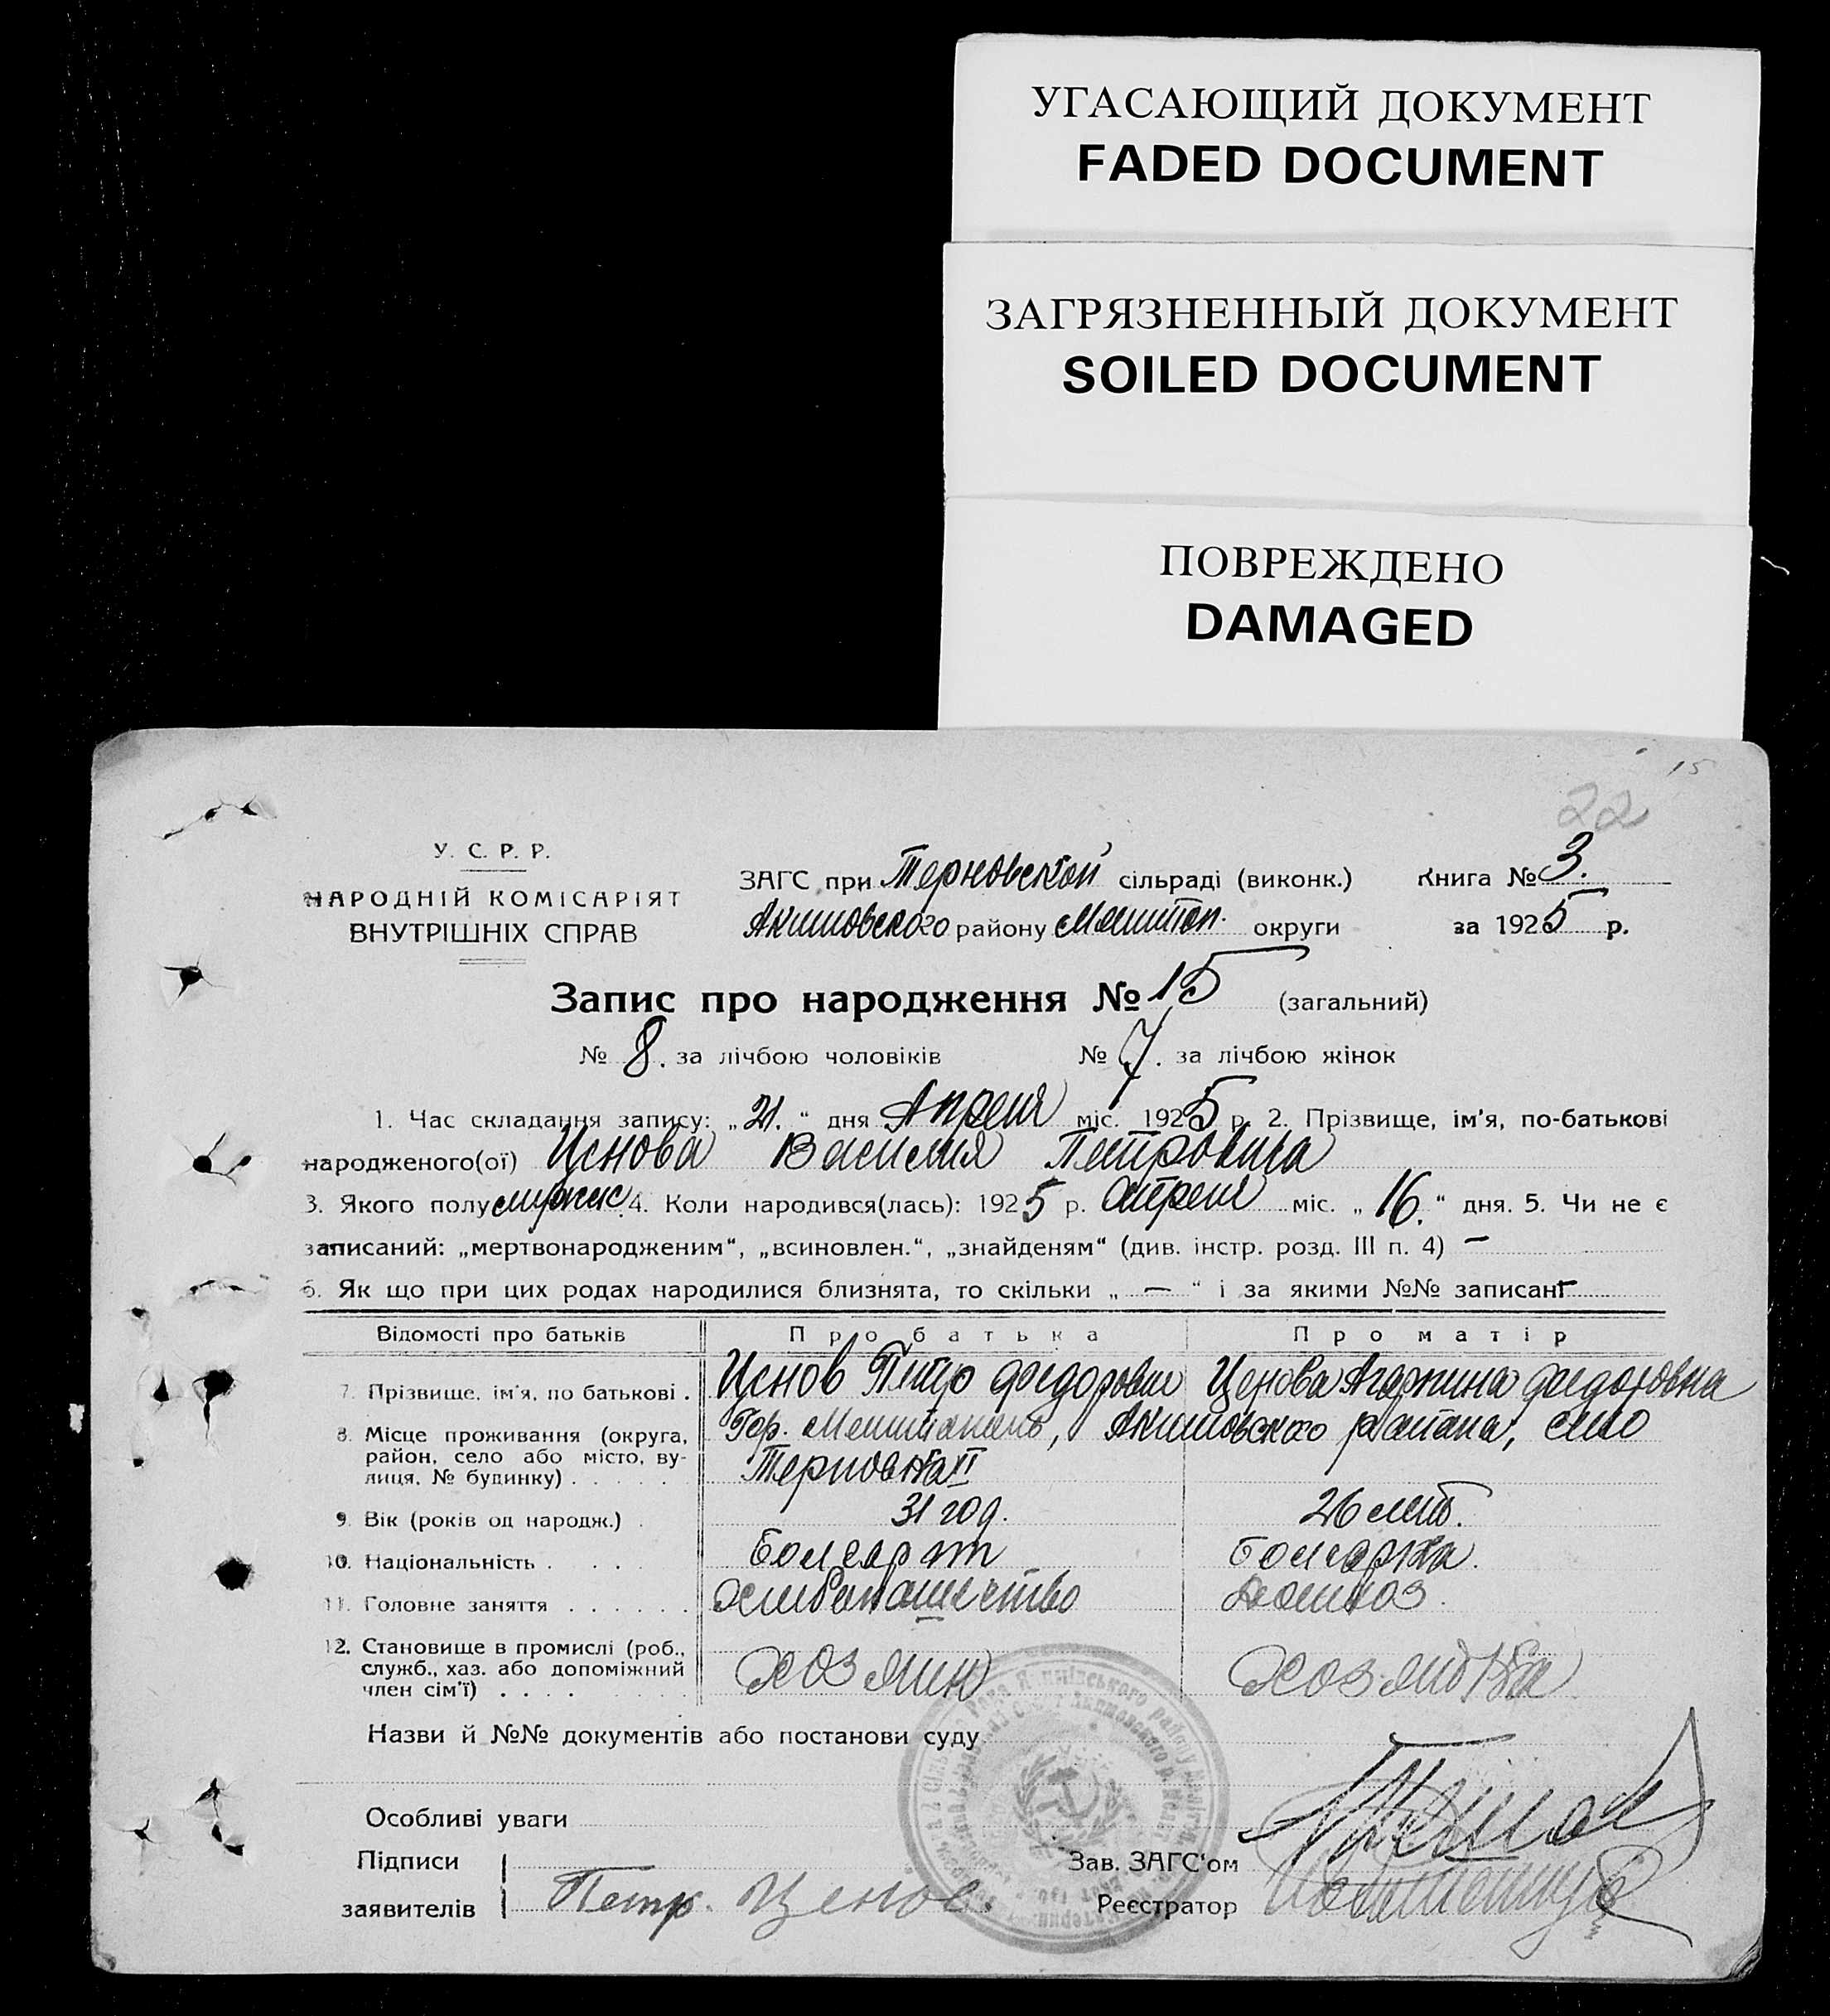 УГАСАЮЩИЙ ДОКУМЕНТ
FADED DOCUMENT
ЗАГРЯЗНЕННЫЙ ДОКУМЕНТ
SOILED DOCUMENT
ПОВРЕЖДЕНО
DAMAGED
15
22
У. С. Р. Р.
НАРОДНІЙ КОМІСАРІЯТ
ВНУТРІШНІХ СПРАВ
ЗАГС при Терновской сільраді (виконк.) Книга № 3.
Акимовского району Мелитоп. округи за 1925 р.
Запис про народження № 15 (загальний)
№ 8. за лічбою чоловіків № 7. за лічбою жінок
1. Час складання запису: „21.“ дня Апреля міс. 1925 р. 2. Прізвище, ім’я, по-батькові
народженого(ої) Ценова Василия Петровича
3. Якого полу мужск. 4. Коли народився(лась): 1925 р. Апреля міс. „16.“ дня. 5. Чи не є
записаний: „мертвонародженим“, „всиновлен.“, „знайденям“ (див. інстр. розд. III п. 4) —
6. Як що при цих родах народилися близнята, то скільки „ — “ і за якими №№ записані —
Відомості про батьків Про батька Про матір
7. Прізвище, ім’я, по батькові . Ценов Петр Федорович Ценова Агарпина Федоровна
8. Місце проживання (округа, район, село або місто, вулиця, № будинку) . . . . . Гор. Мелитополь, Акимовского района, село
Терновка II
9. Вік (років од народж.) . 31 год. 26 лет.
10. Національність . . . . Болгарин Болгарка.
11. Головне заняття . . . . . . Хлебопашество Домхоз.
12. Становище в промислі (роб., служб., хаз. або допоміжний член сім’ї) . . . . Хозяин Хозяйка
Назви й №№ документів або постанови суду
Особливі уваги
Підписи
заявителів Петр. Ценов.
Зав. ЗАГС‘ом
Реєстратор